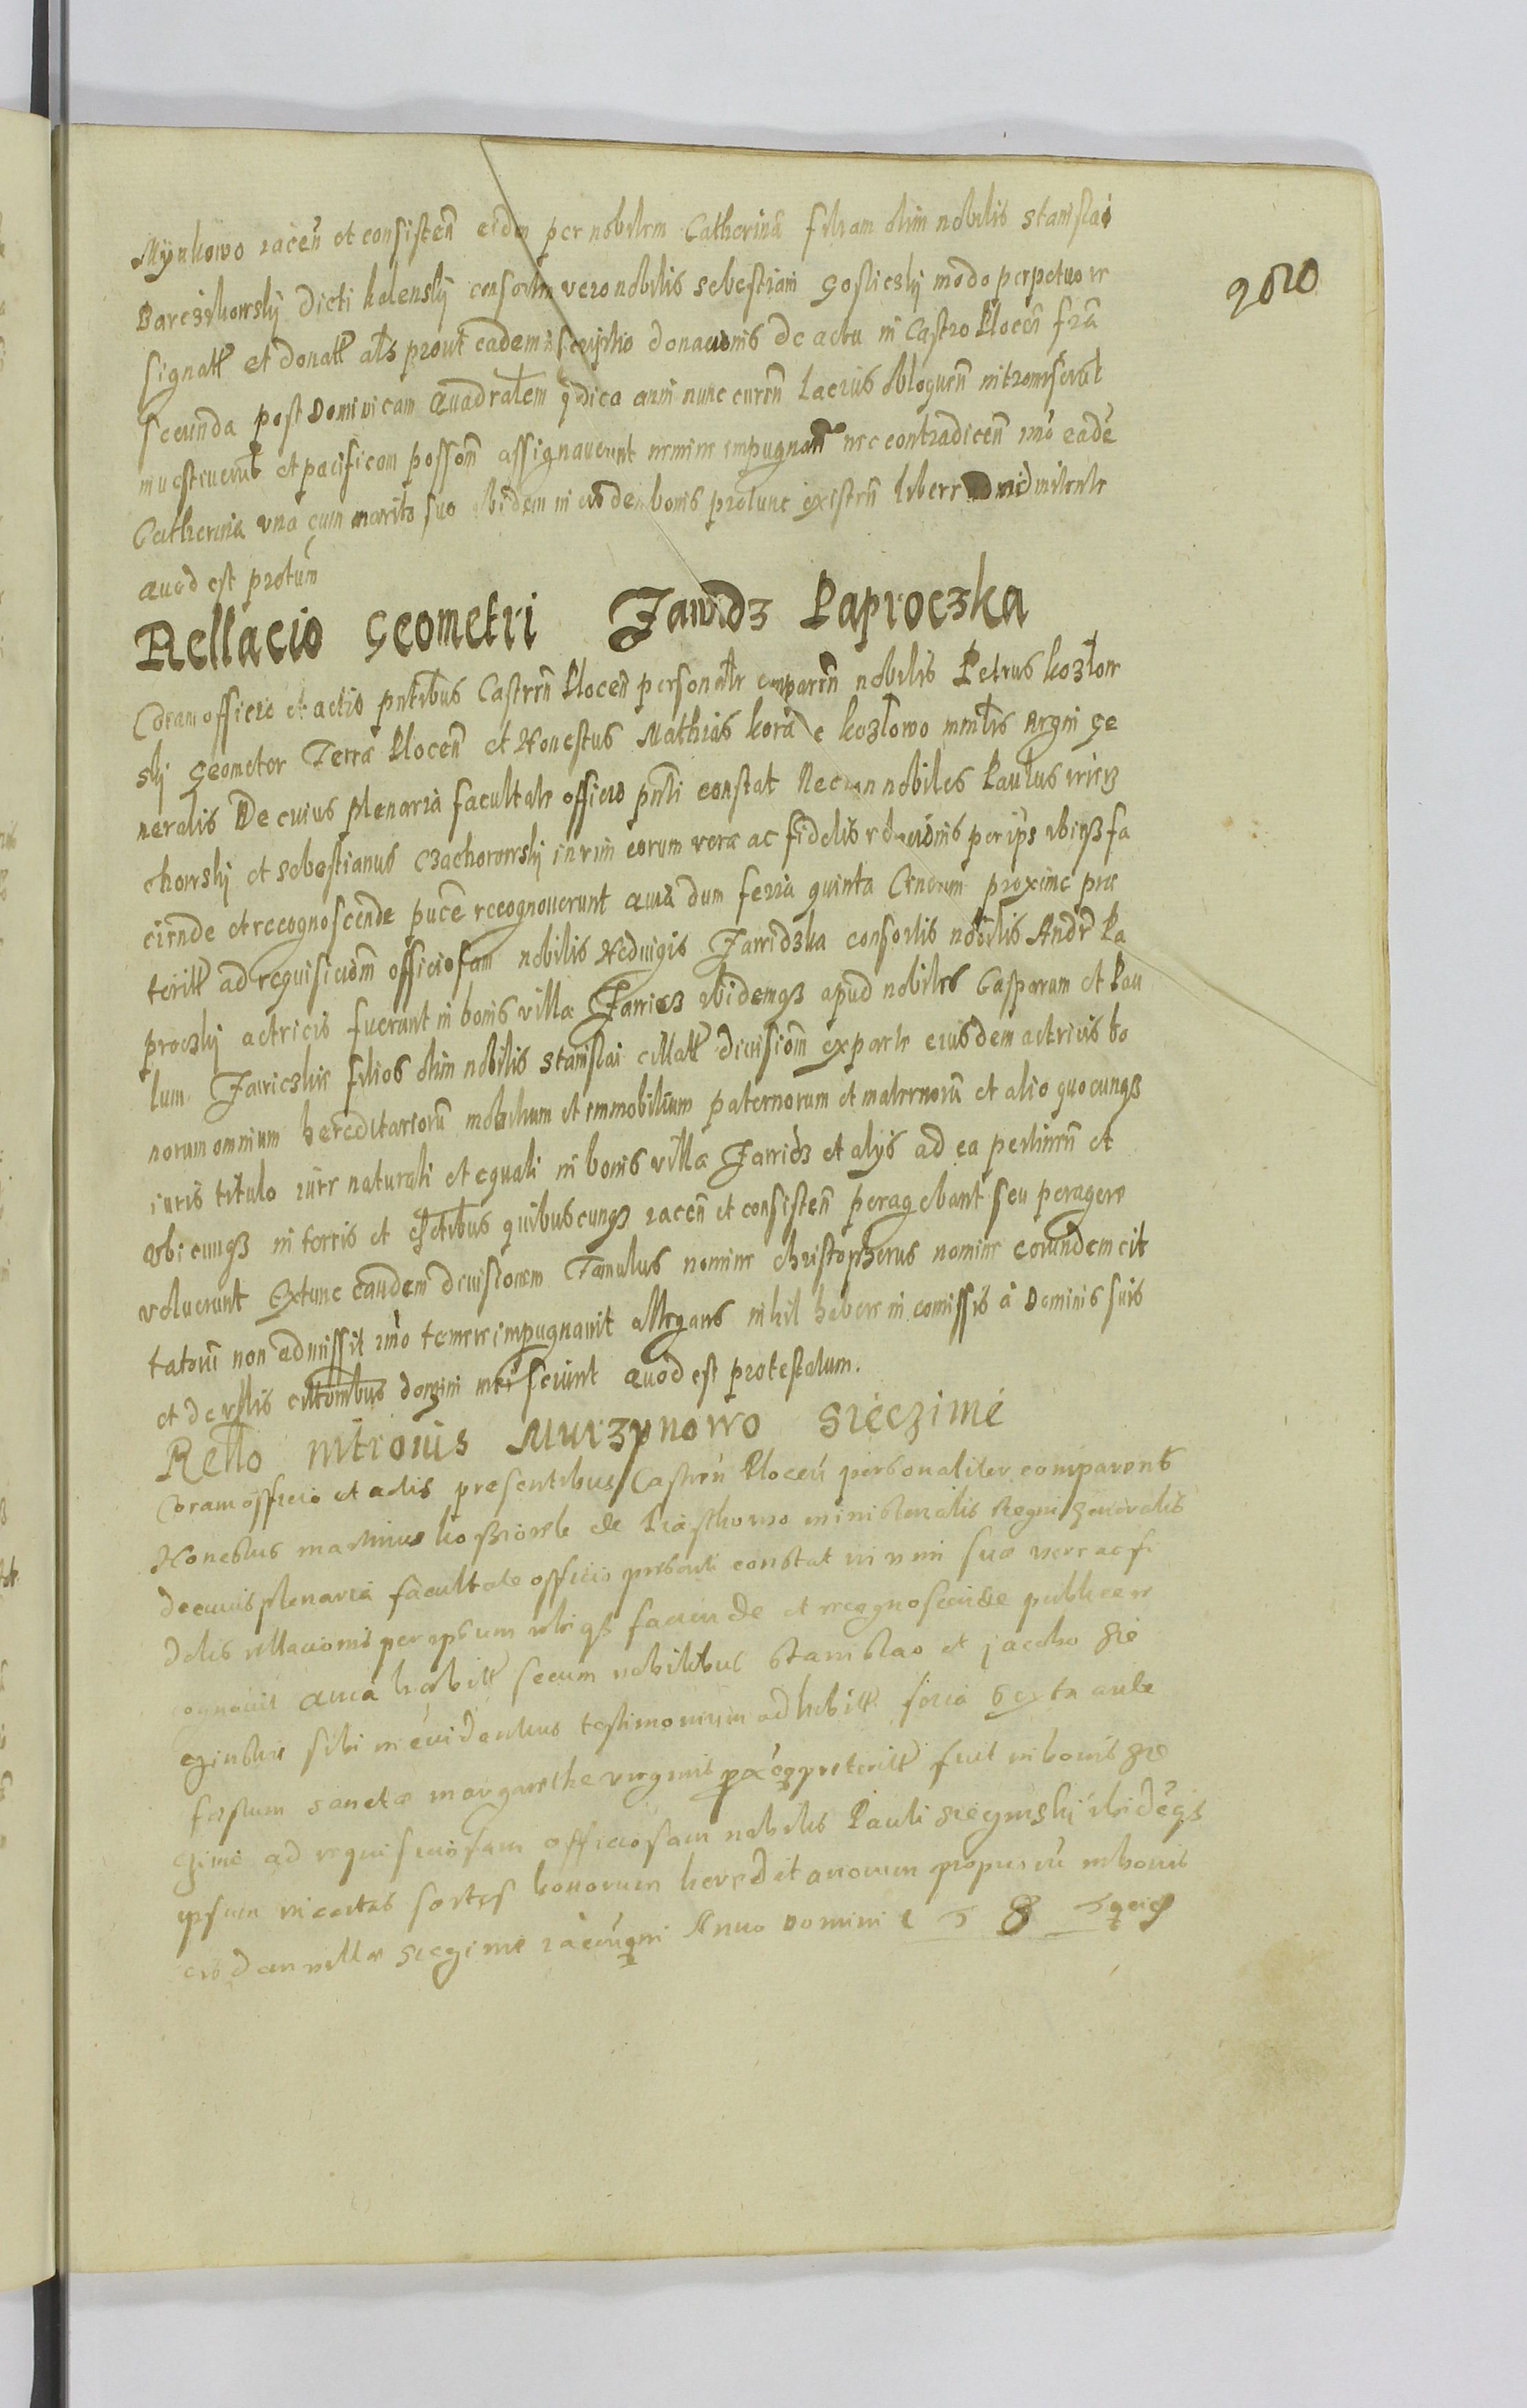 2020
Mÿnkowo iacen̄ et consisten̄ eidem per nobilem Catherinā filiam olim nobilis Stanislai
Barczikowskÿ dicti kalenskÿ consortem vero nobilis Sebestiani Goslicskÿ modo perpetuo re
signatt et donatt als prout eadem inscriptio donacionis de actu in Castro Plocen̄ fria
secunda post Dominicam Quadratem ididca anni nunc curen̄ lacius obloquen̄ intromiserūt
inuestiuerūt et pacificam possōm assignauerunt nemine impugnan̄ nec contradicen̄ imo eadē
Catherina vna cum marito suo ibidem in eisdem bonis protunc existen̄ libere admittente
Quod est protūm
Rellacio Geometri Jawidz Paproczka
Coram officio et actis pntibus Castren̄ Plocen̄ personaltr comparen̄ nobilis Petrus kozlow
skÿ Geometer Terrae Plocen̄ et Honestus Mathias kora e kozlowo mintlis Regni Ge
neralis De cuius plenaria facultate officio pnti constat Necnon nobiles Paulus
chowskÿ et Sebestianus Czachorowskÿ in vim eorum verae ac fidelis relacionis per ips vbiqz fa
ciende et recognoscende puce recognouerunt Quia dum feria quinta Cinerum proxime prae
teritt ad requisiciōm officiosam nobilis Hedvigis Jawidzka consortis nobilis Andr Pa
proczkÿ actricis fuerunt in bonis villae Jawidz ibidemqz apud nobiles Casparum et Pau
lum Jawiczkie filios olim nobilis Stanislai citatt diuisiōm ex parte eiusdem actricis bo
norum omnium hereditariorū mobilium et immobilium paternorum et maternorū et alio quocunqz
iuris titulo iure naturali et equali in bonis villae Jawidz et alÿs ad ea pertinen̄ et
vbicunqz in terris et districtibus quibuscunqz iacen̄ et consisten̄ peragebant seu peragere
voluerunt Extunc eandem diuisionem Famulus nomine Christopherus nomine eorundem cit
tatorū non admissit imo temere impugnauit allegans nihil habere in comissis a Dominis suis
et de istis citationibus domini mei sciunt Quod est protestatum.
Rello intrōnis Murzynowo Siéczimé
Coram officio et actis presentibus Castren̄ Plocen̄ personaliter comparens
Honestus Martinus de ministerialis Regni Generalis
de cuius plenaria facultate officio presenti constat in vim suae verae ac fi
delis rellacionis per ipsum vbiqz faciende et recognoscende publice re
cognouit Quia habitt secum nobilibus Stanislao et Jacobo Sie
czinskie sibi in euidentius testimonium adhibitt feria sexta ante
festum sanctae Margarethe virginis proxe preteritt fuit in bonis Sie
czime ad requisiciosam officiosam nobilis Pauli Siecinskÿ ibideqz
ipsum in certas sortes bonorum hereditariorum in bonis
eisdem villae Sieczime Anno Domini 1 5 8